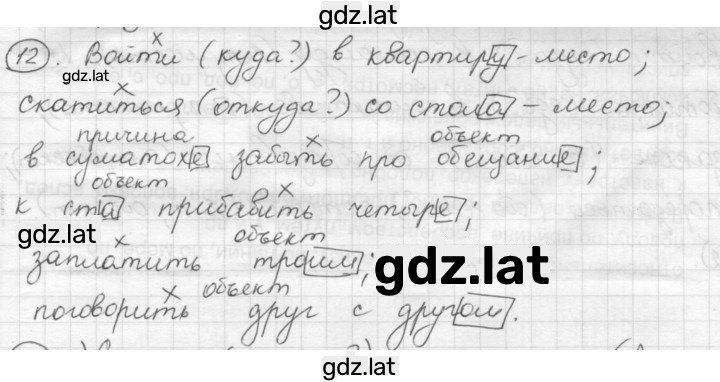 gdz.lat
12. Войти (куда?) в квартиру - место;
gdz.lat
скатиться (откуда?) со стола - место;
причина объект
в суматохе забыть про обещание;
объект
к ста прибавить четыре;
gdz.lat
объект
заплатить троим;
gdz.lat
объект
поговорить друг с другом.
gdz.lat